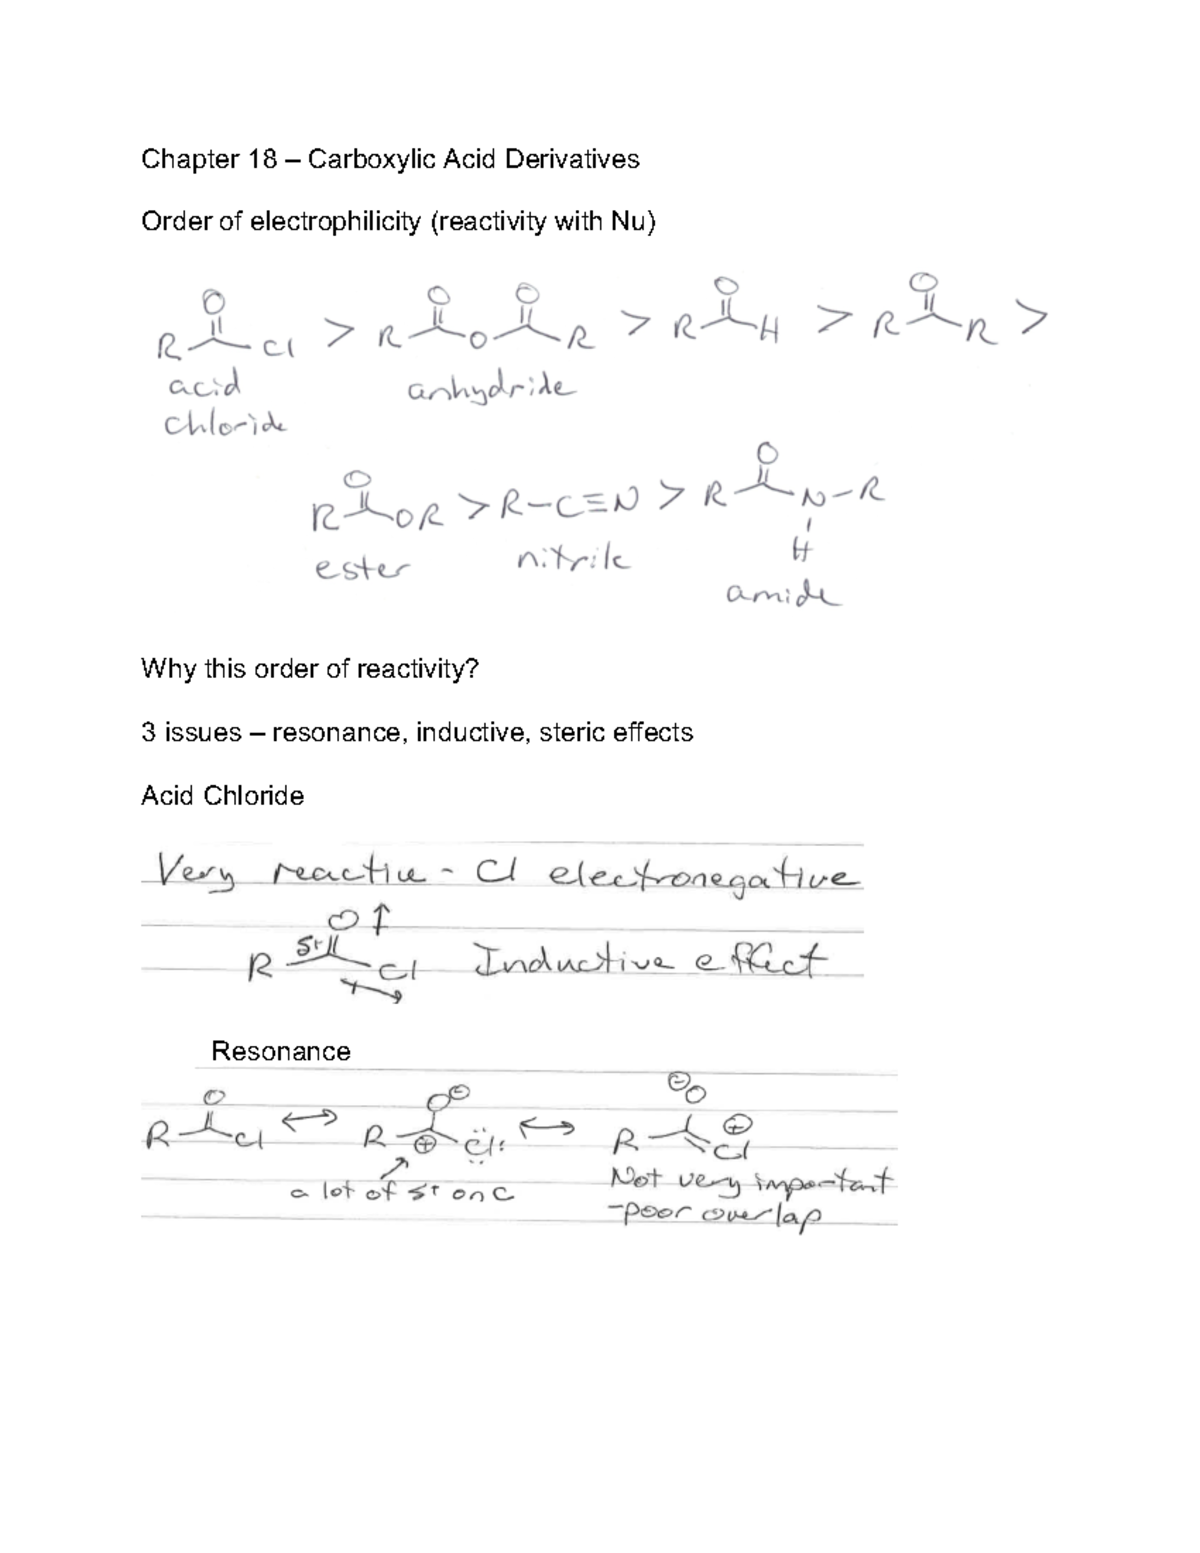 Chapter 18 – Carboxylic Acid Derivatives
Order of electrophilicity (reactivity with Nu)
O O O O O
R Cl > R O R > R H > R R >
acid anhydride
chloride
O O
R OR > R–C≡N > R N–R
H
ester nitrile
amide
Why this order of reactivity?
3 issues – resonance, inductive, steric effects
Acid Chloride
Very reactive - Cl electronegative
O ↑
R δ+ Cl Inductive effect
Resonance
O O⊖ ⊖O
R Cl ↔ R ⊕ Cl: ↔ R Cl ⊕
a lot of δ+ on C Not very important
-poor overlap